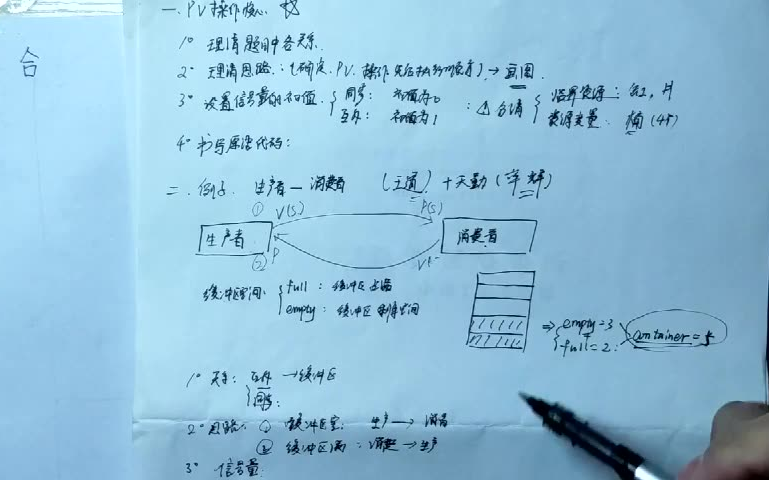 合
一、PV操作核心
1° 理清题目中各关系.
2° 理清思路：(确定 PV 操作先后执行的顺序) → 画图.
3° 设置信号量的初值 { 同步： 初值为0 互斥： 初值为1 : △ 分清 { 临界资源：缸，片 资源变量：桶 (45)
4° 书写原语代码：
二、例子. 生产者 — 消费者 (王道) + 天勤 (率辉)
① V(S) P(S)
生产者 消费者
② P V
缓冲区空间 { full : 缓冲区占满
empty : 缓冲区剩余空间
⇒ { empty=3
full=2. container=5
1° 关系： { 互斥 → 缓冲区
同步：
2° 思路： ① 缓冲区空： 生产 → 消费
② 缓冲区满： 消费 → 生产
3° 信号量